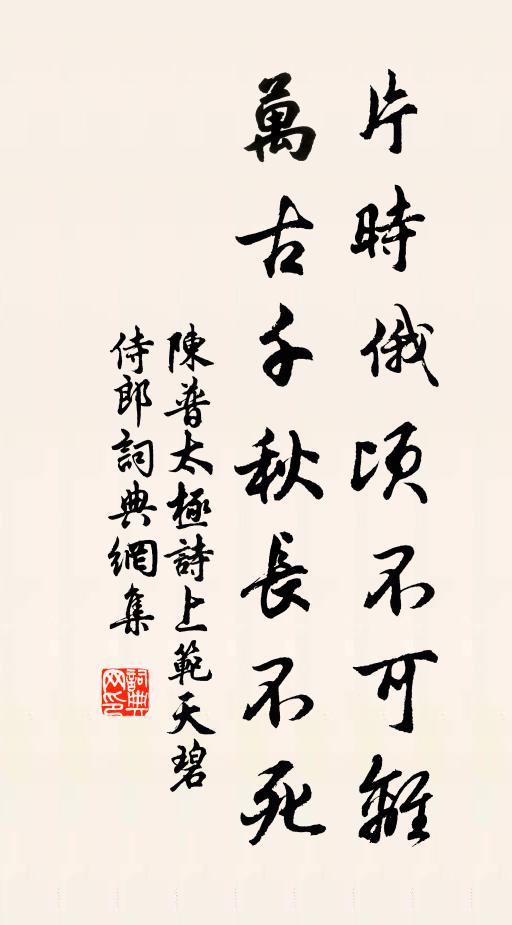 片時俄頃不可離
萬古千秋長不死
陳普太極詩上範天碧
侍郎詞典網集
詞典网印